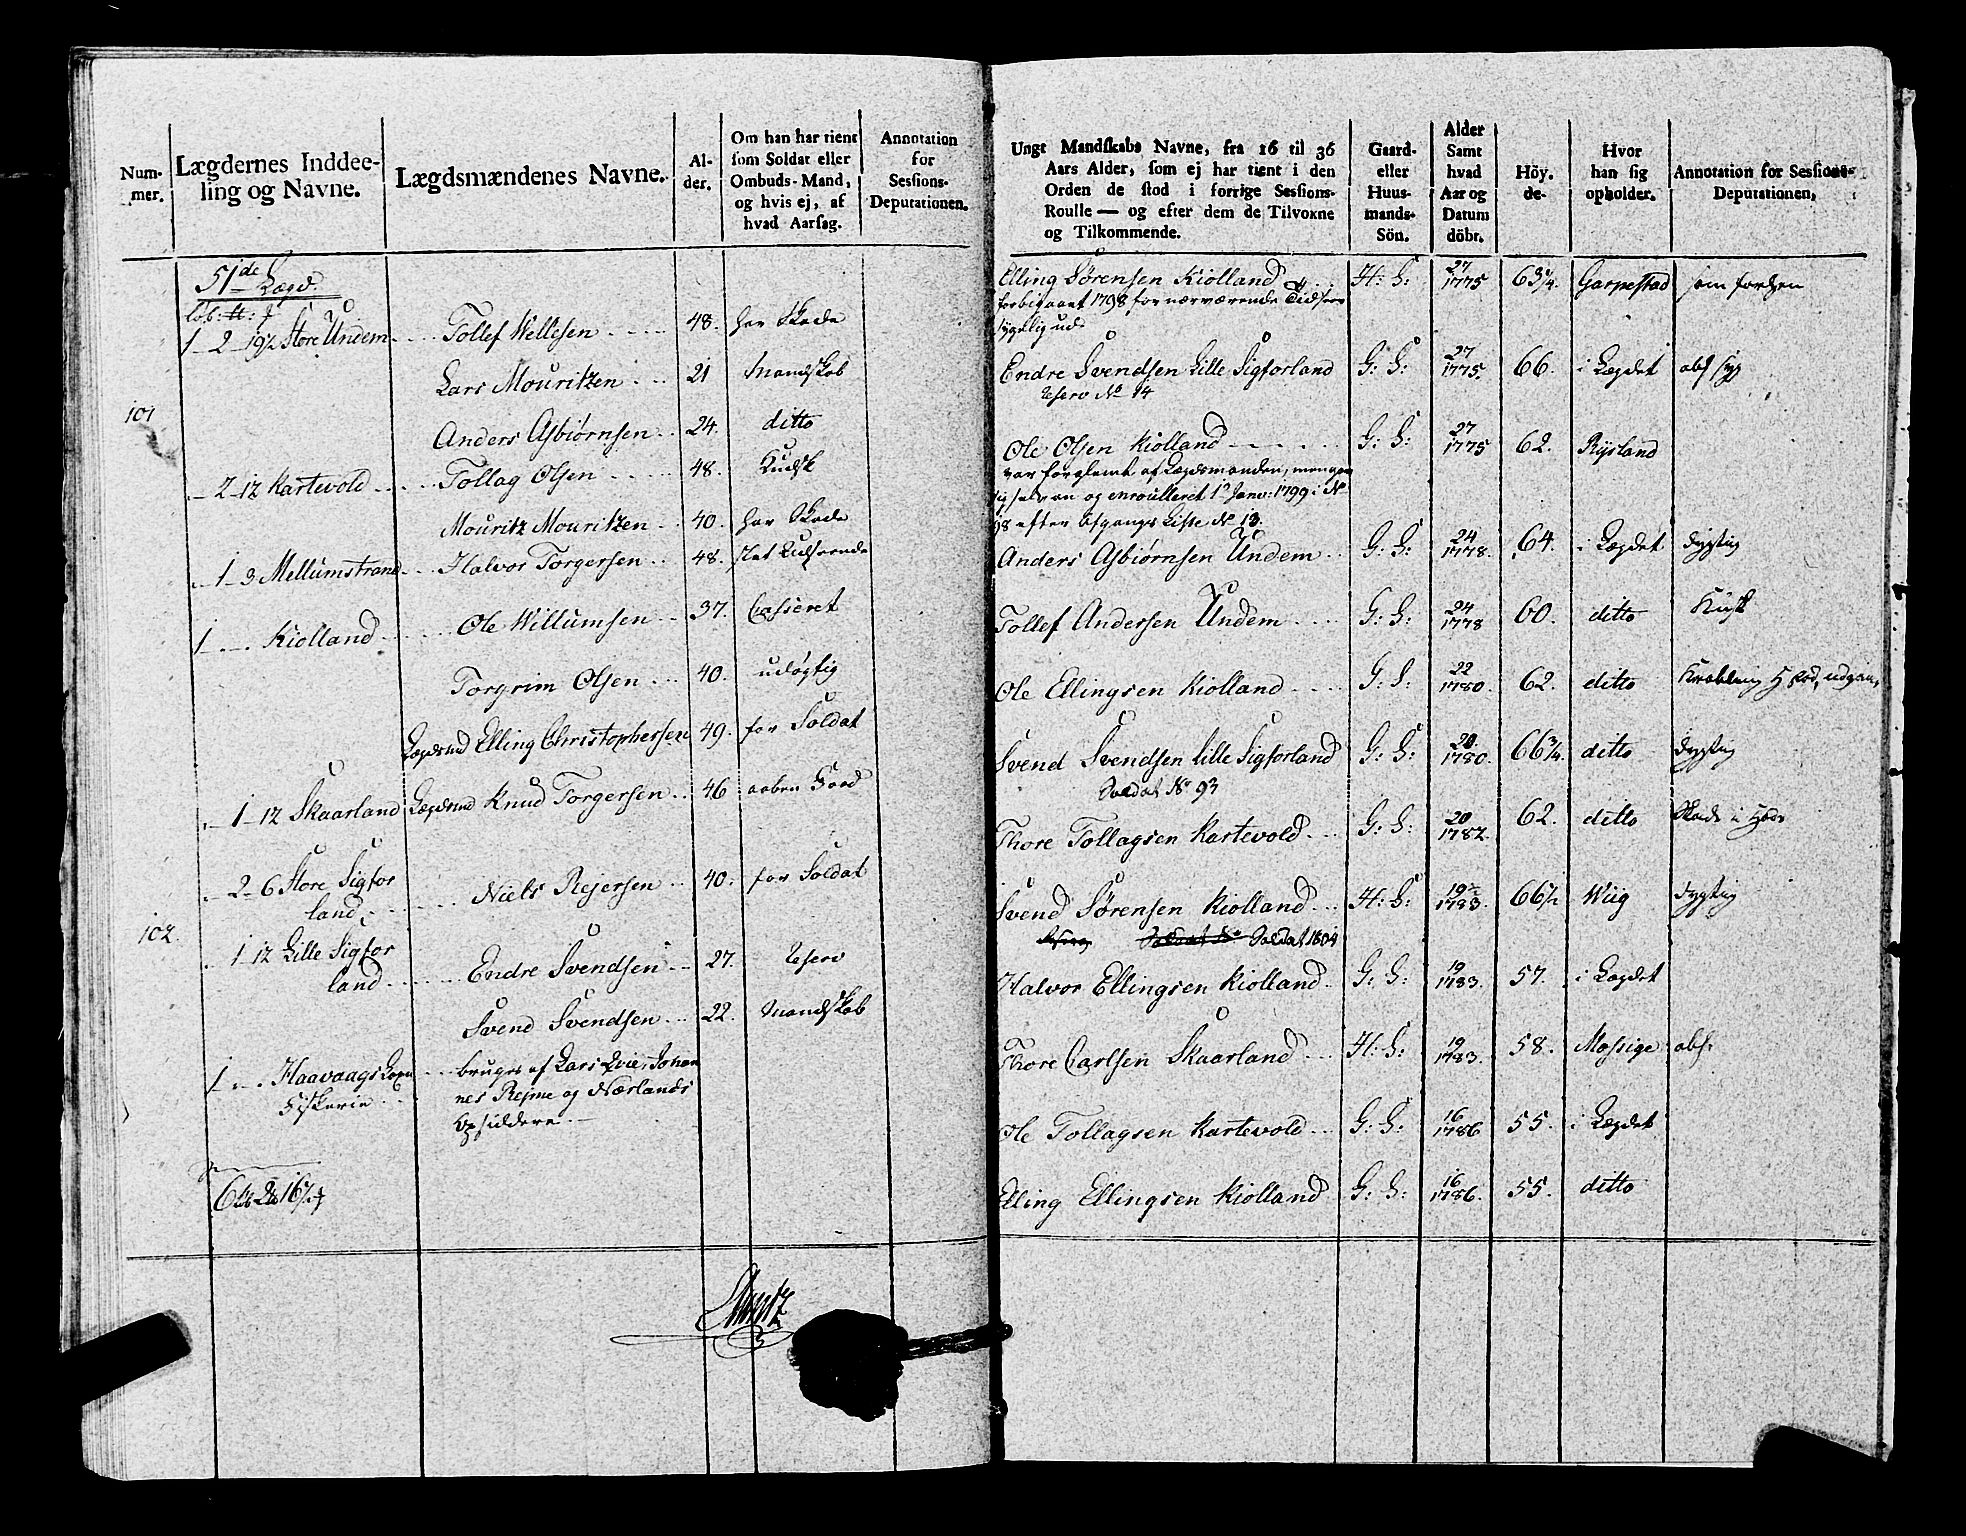 Num-
mer.
Lægdernes Inddee-
ling og Navne.
Lægdsmændenes Navne.
Al-
der.
Om han har tient
som Soldat eller
Ombuds-Mand,
og hvis ej, af
hvad Aarsag.
Annotation
for
Sessions-
Deputationen.
51de Lægd.
1 2 19½ Store Undem Tollef Wellesen 48. har Skade
Lars Mouritzen 21 Mandskab
101
Anders Asbiørnsen 24. ditto
2 12 Kartevold Tollag Olsen 48. Kudsk
Mouritz Mouritzen 40. har Skade
1 3 Mellumstrand Halvor Torgersen 48.
1 Kiolland Ole Willumsen 37. Casseret
Torgrim Olsen 40. udøgtig
Lægdsmd Elling Christophersen 49. har Soldat
1 12 Skaarland Lægdsmd Knud Torgersen 46
2 6 Store Sigfor
land Niels Rejersen 40. har Soldat
102.
1 12 Lille Sigfor
land Endre Svendsen 27. Reserv
Svend Svendsen 22. Mandskab
1 Haavaags Laxe
Fiskerie
bruges af Lars Qvie, Johan
nes Rejme og Nærlands
Opsiddere
6 2 16½
Ungt Mandskabs Navne, fra 16 til 36
Aars Alder, som ej har tient i den
Orden de stod i forrige Sessions-
Roulle — og efter dem de Tilvoxne
og Tilkommende.
Gaard-
eller
Huus-
mands-
Sön.
Alder
Samt
hvad
Aar og
Datum
döbt.
Höy.
de-
Hvor
han sig
opholder.
Annotation for Sessions-
Deputationen,
Elling Sørensen Kiolland H: S: 27 1775 63¼ Garpestad som forhen
forbigaaet 1798 for nærværende Tid
sygelig ud
Endre Svendsen Lille Sigforland G: S: 27 1775. 66. i Lægdet abs syg
Reserv No 14
Ole Olsen Kiolland G: S: 27 1775 62. Rysland
var forglemt af Lægdsmanden,
og enroulleret 1 Janv: 1799 i No
98 efter Afgangs Liste No 13.
Anders Asbiørnsen Undem G: S: 24 1778. 64. i Lægdet dygtig
Tollef Andersen Undem G: S: 24 1778 60. ditto Kusk
Ole Ellingsen Kiolland G: S: 22 1780. 62. ditto
Svend Svendsen Lille Sigforland G: S: 20 1780. 66¾ ditto dygtig
Soldat No 93
Thore Tollagsen Kartevold G: S: 20 1782. 62. ditto Skade i
Svend Sørensen Kiolland H: S: 19½ 1783. 66½ Wiig dygtig
Soldat No Soldat 1804
Halvor Ellingsen Kiolland G: S: 19 1783. 57. i Lægdet
Thore Carlsen Skaarland H: S: 19 1783. 58. Mossige abs.
Ole Tollagsen Kartevold G: S: 16 1786 55. i Lægdet
Elling Ellingsen Kiolland G: S: 16 1786. 55. ditto